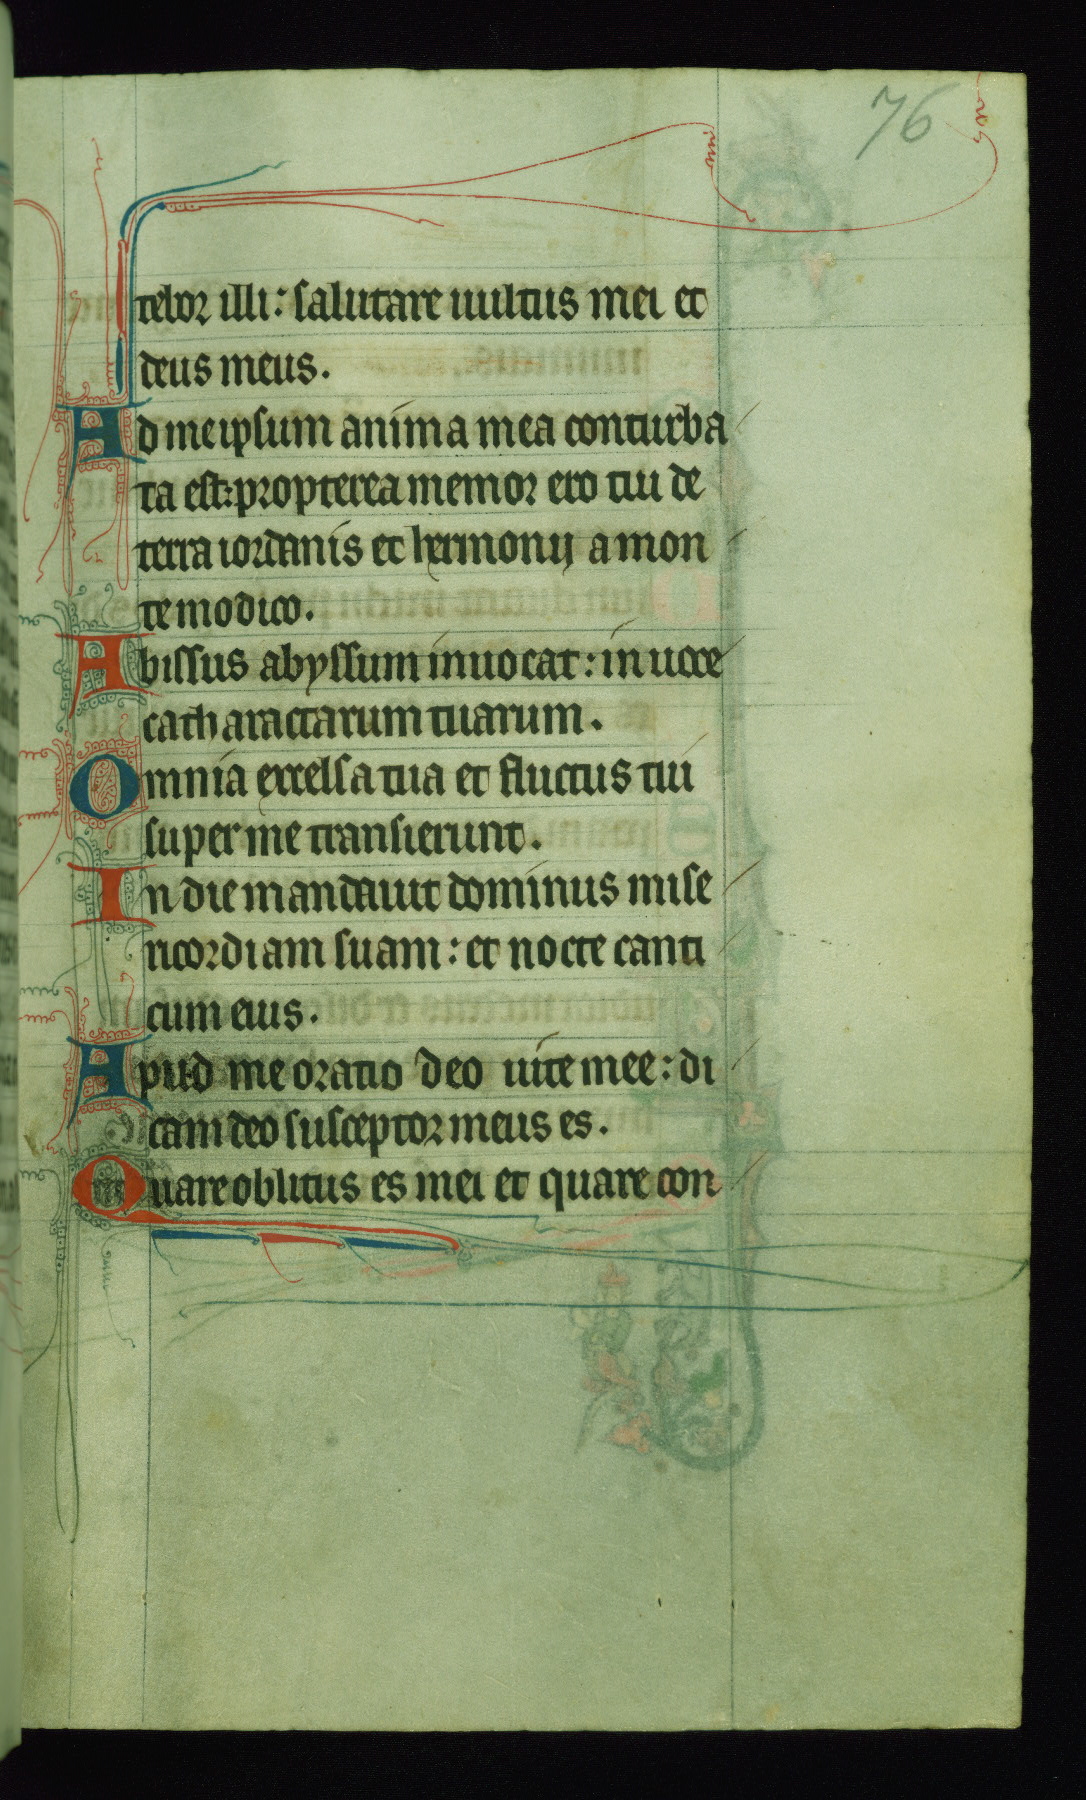 76
telor illi: salutare uultus mei et
deus meus.
Ad me ipsum anima mea conturba
ta est: propterea memor ero tui de
terra iordanis et hermonij a mon
te modico.
Abissus abyssum inuocat: in uoce
catharactarum tuarum.
Omnia excelsa tua et fluctus tui
super me transierunt.
In die mandauit dominus mise
ricordiam suam: et nocte canti
cum eius.
Apud me oratio deo uite mee: di
cam deo susceptor meus es.
Quare oblitus es mei et quare con